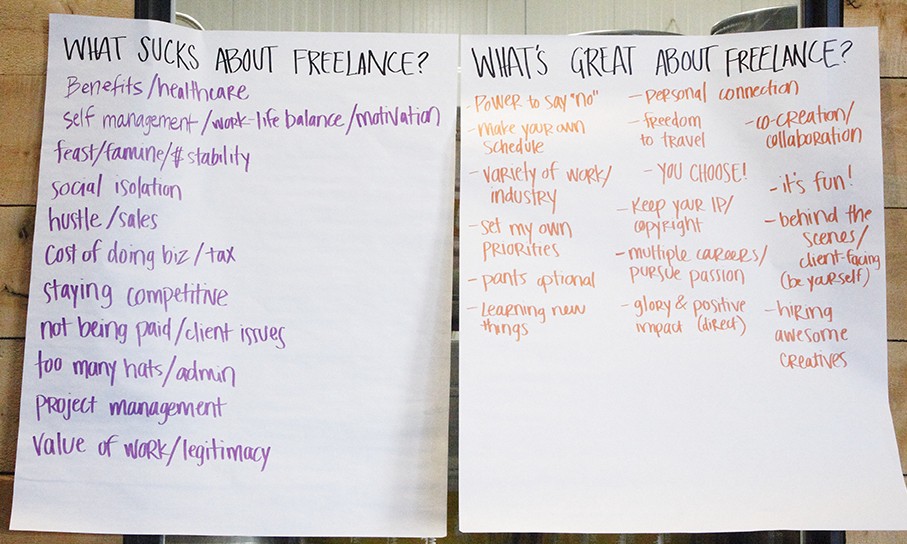 WHAT SUCKS ABOUT FREELANCE?
Benefits/healthcare
self management/work-life balance/motivation
feast/famine/$ stability
social isolation
hustle/sales
cost of doing biz/tax
staying competitive
not being paid/client issues
too many hats/admin
project management
value of work/legitimacy
WHAT'S GREAT ABOUT FREELANCE?
- Power to say "no"
- make your own
schedule
- variety of work/
industry
- set my own
priorities
- pants optional
- Learning new
things
- personal connection
- freedom
to travel
- YOU CHOOSE!
- Keep your IP/
copyright
- multiple careers/
pursue passion
- glory & positive
impact (direct)
- co-creation/
collaboration
- it's fun!
- behind the
scenes/
client-facing
(be yourself)
- hiring
awesome
creatives